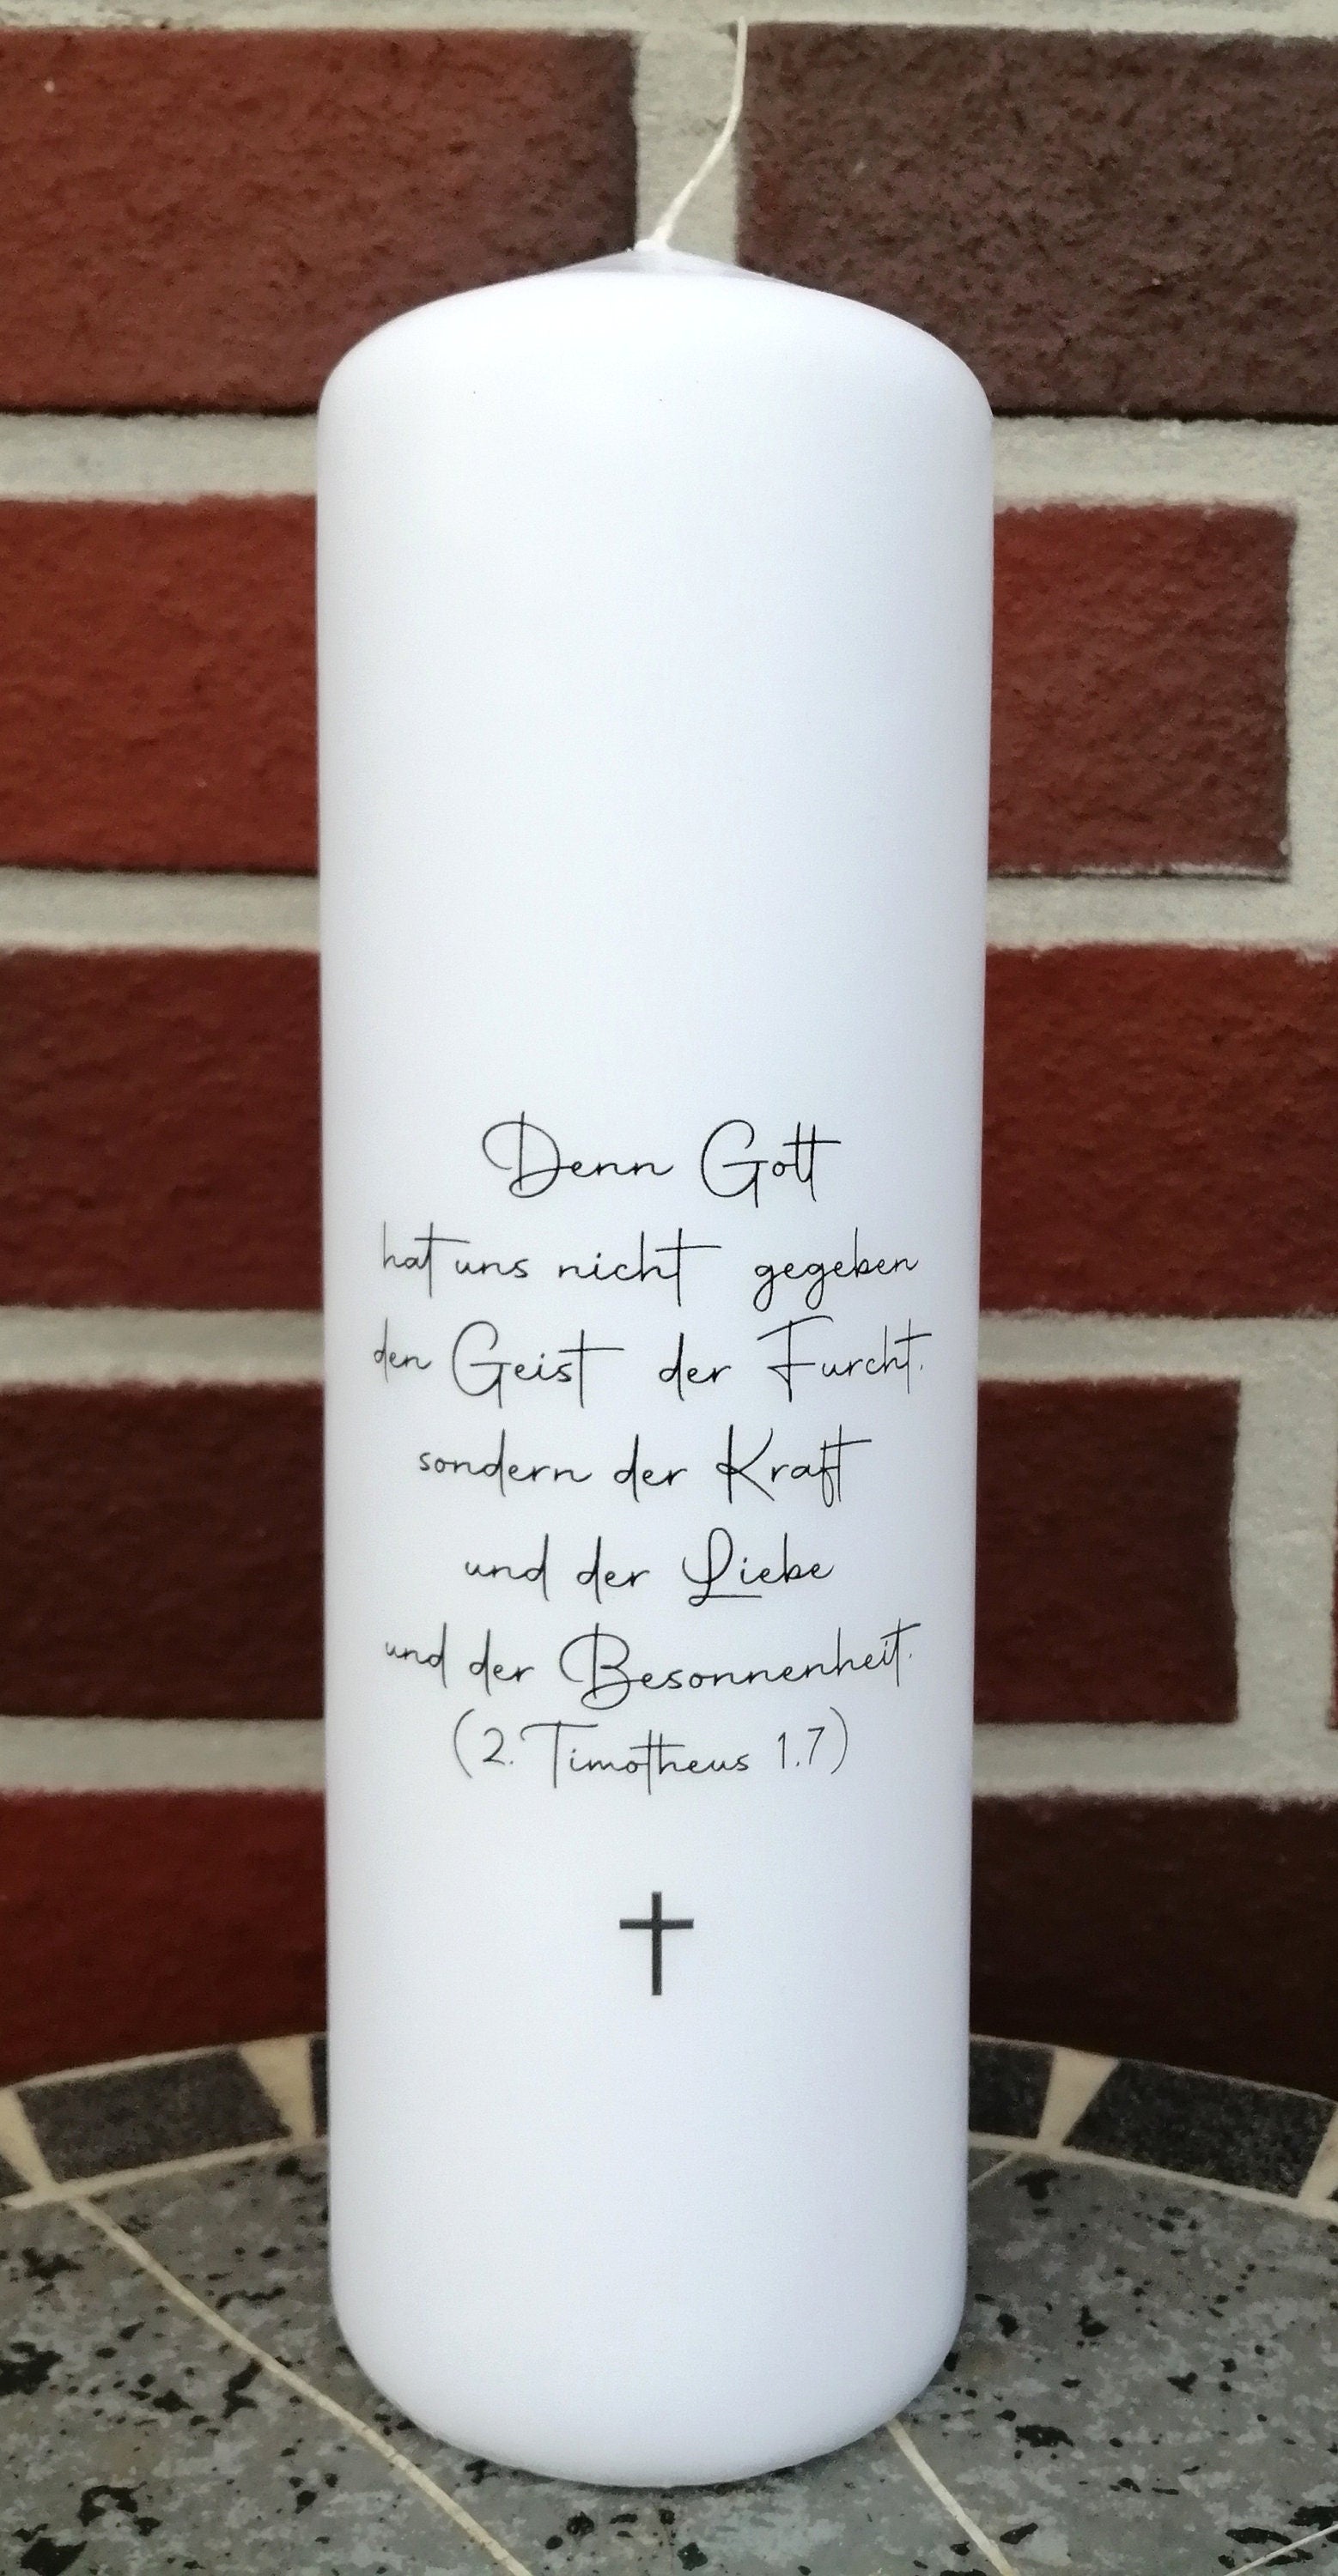 Denn Gott
hat uns nicht gegeben
den Geist der Furcht.
sondern der Kraft
und der Liebe
und der Besonnenheit.
(2. Timotheus 1.7)